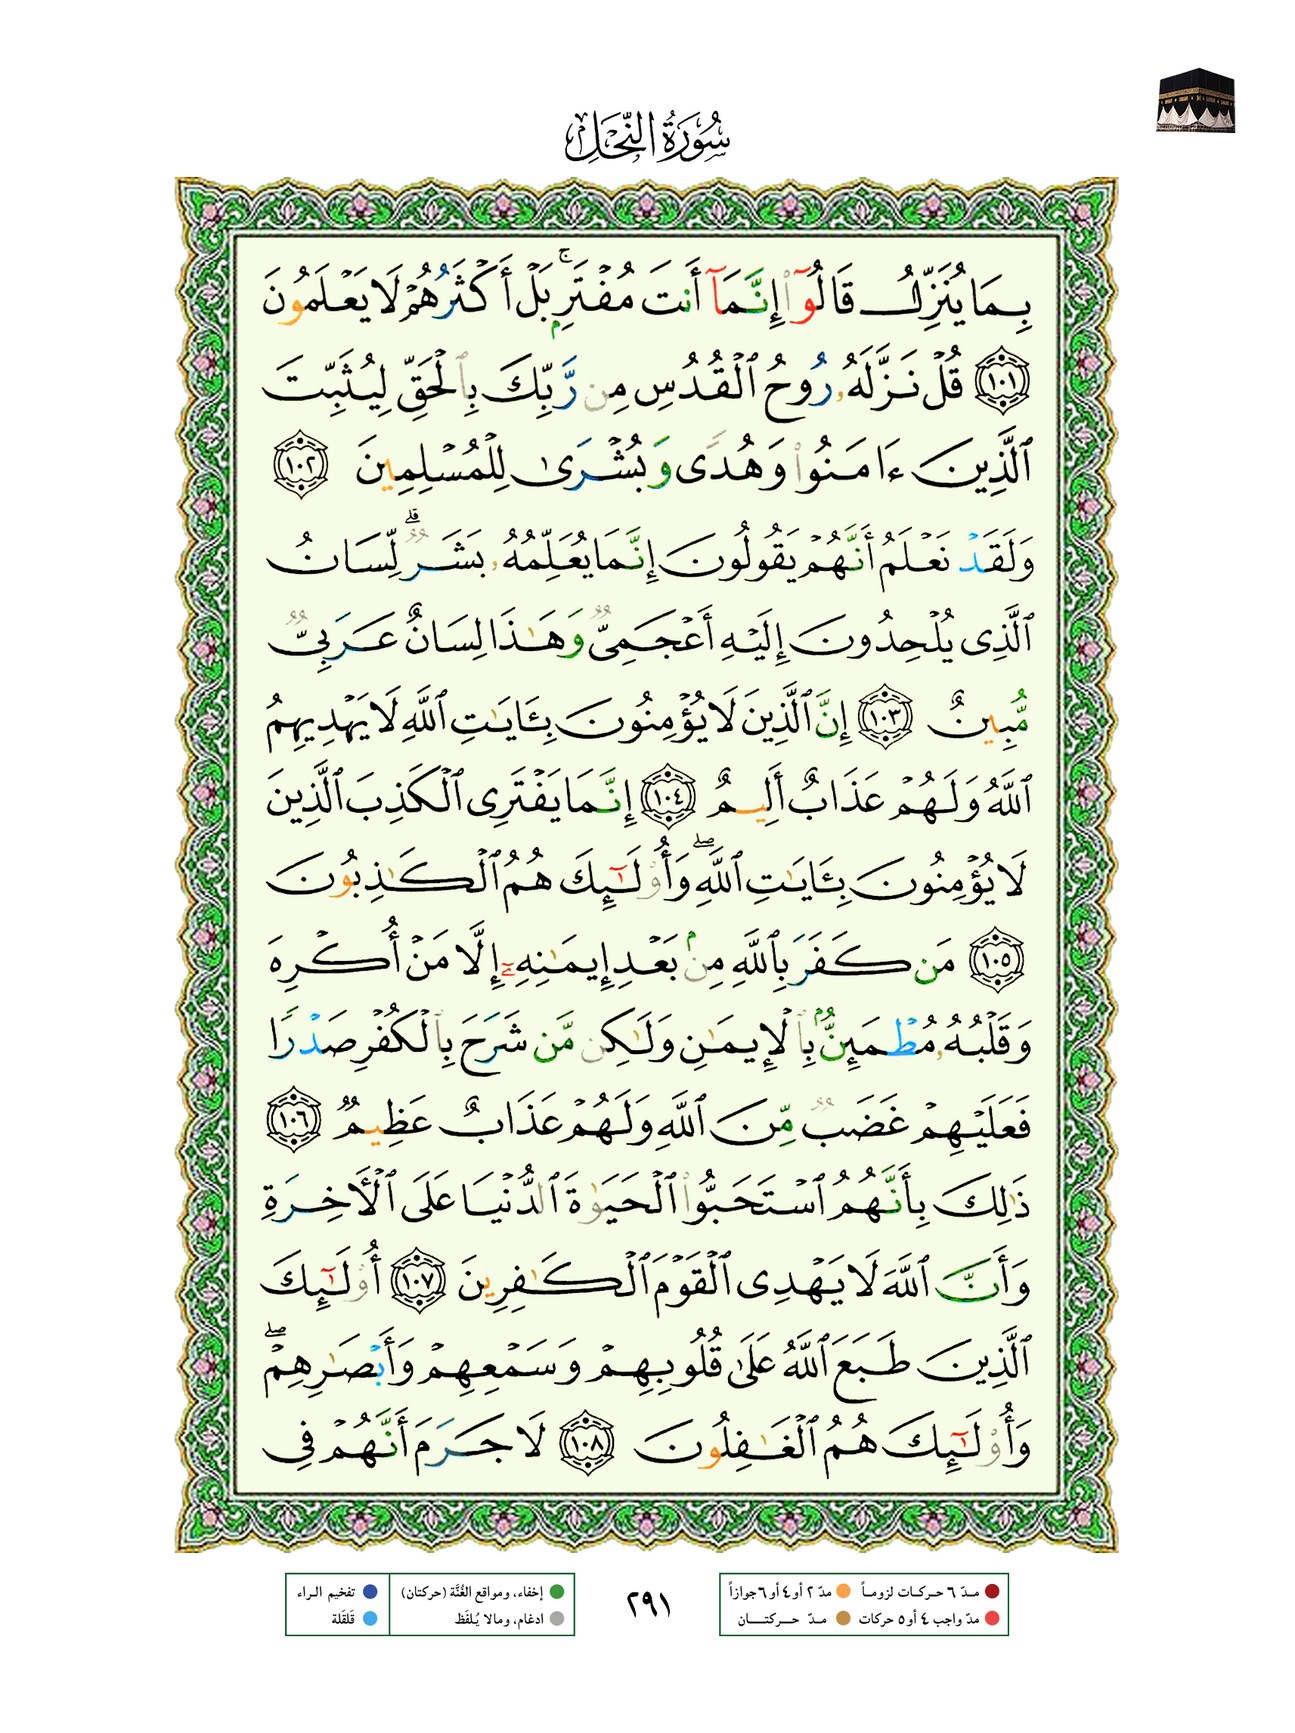 سُورَةُ النَّحْلِ
بِمَا يُنَزِّلُ قَالُوٓا۟ إِنَّمَآ أَنتَ مُفْتَرِۭ ۚ بَلْ أَكْثَرُهُمْ لَا يَعْلَمُونَ
١٠١ قُلْ نَزَّلَهُۥ رُوحُ ٱلْقُدُسِ مِن رَّبِّكَ بِٱلْحَقِّ لِيُثَبِّتَ
ٱلَّذِينَ ءَامَنُوا۟ وَهُدًى وَبُشْرَىٰ لِلْمُسْلِمِينَ ١٠٢
وَلَقَدْ نَعْلَمُ أَنَّهُمْ يَقُولُونَ إِنَّمَا يُعَلِّمُهُۥ بَشَرٌ ۗ لِّسَانُ
ٱلَّذِى يُلْحِدُونَ إِلَيْهِ أَعْجَمِىٌّ وَهَـٰذَا لِسَانٌ عَرَبِىٌّ
مُّبِينٌ ١٠٣ إِنَّ ٱلَّذِينَ لَا يُؤْمِنُونَ بِـَٔايَـٰتِ ٱللَّهِ لَا يَهْدِيهِمُ
ٱللَّهُ وَلَهُمْ عَذَابٌ أَلِيمٌ ١٠٤ إِنَّمَا يَفْتَرِى ٱلْكَذِبَ ٱلَّذِينَ
لَا يُؤْمِنُونَ بِـَٔايَـٰتِ ٱللَّهِ ۖ وَأُو۟لَـٰٓئِكَ هُمُ ٱلْكَـٰذِبُونَ
١٠٥ مَن كَفَرَ بِٱللَّهِ مِنۢ بَعْدِ إِيمَـٰنِهِۦٓ إِلَّا مَنْ أُكْرِهَ
وَقَلْبُهُۥ مُطْمَئِنٌّۢ بِٱلْإِيمَـٰنِ وَلَـٰكِن مَّن شَرَحَ بِٱلْكُفْرِ صَدْرًا
فَعَلَيْهِمْ غَضَبٌ مِّنَ ٱللَّهِ وَلَهُمْ عَذَابٌ عَظِيمٌ ١٠٦
ذَٰلِكَ بِأَنَّهُمُ ٱسْتَحَبُّوا۟ ٱلْحَيَوٰةَ ٱلدُّنْيَا عَلَى ٱلْـَٔاخِرَةِ
وَأَنَّ ٱللَّهَ لَا يَهْدِى ٱلْقَوْمَ ٱلْكَـٰفِرِينَ ١٠٧ أُو۟لَـٰٓئِكَ
ٱلَّذِينَ طَبَعَ ٱللَّهُ عَلَىٰ قُلُوبِهِمْ وَسَمْعِهِمْ وَأَبْصَـٰرِهِمْ ۖ
وَأُو۟لَـٰٓئِكَ هُمُ ٱلْغَـٰفِلُونَ ١٠٨ لَا جَرَمَ أَنَّهُمْ فِى
مدّ ٦ حركات لزوماً مدّ ٢ أو ٤ أو ٦ جوازاً
مدّ واجب ٤ أو ٥ حركات مدّ حركتان
٢٩١
إخفاء، ومواقع الغُنَّة (حركتان) تفخيم الراء
ادغام، ومالا يُلفَظ قَلقَلة